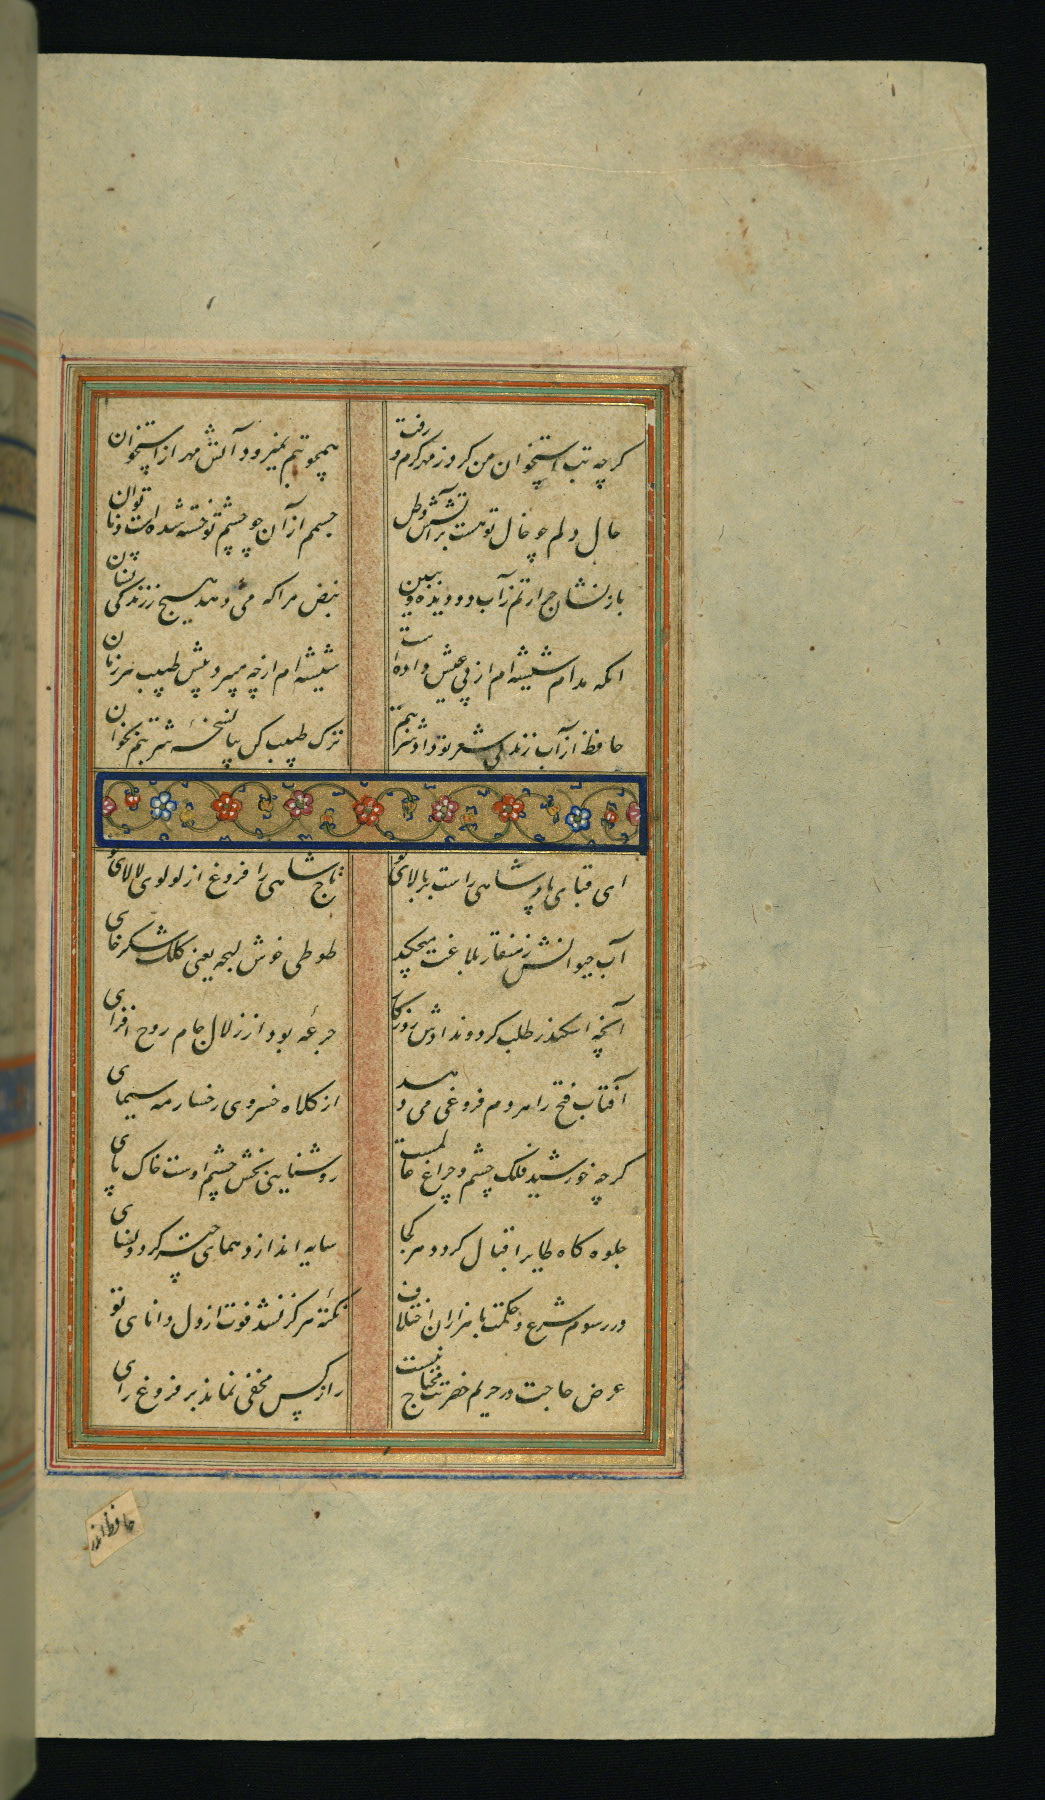 کرچه تب استخوان من کرد ز مهر کرم و رفت
همچو تبم نمیرود آتش مهر از استخوان
حال دلم چو خال تو هست بر آتشش وطن
جسمم از آن چو چشم تو خسته شده است و ناتوان
باز نشان حرارتم ز آب دو دیده و ببین
نبض مرا که می دهد هیچ ز زندکی نشان
انکه مدام شیشه ام از پی عیش داده است
شیشه ام از چه میبرد پیش طبیب هر زمان
حافظ از آب زندکی شعر تو داد شربتم
ترک طبیب کن بیا نسخهٔ شربتم بخوان
ای قبای پادشاهی راست بر بالای تو
تاج شاهی را فروغ از لولوی لالای تو
آب حیوانش ز منقار بلاغت میچکد
طوطی خوش لهجه یعنی کلک شکرخای
آنچه اسکندر طلب کرد و ندادش روزکار
جرعهٔ بود از زلال جام روح افزای
آفتاب فتح را هر دم فروغی می دهد
از کلاه خسروی رخسار مه سیمای
کرچه خورشید فلک چشم و چراغ عالمست
روشنایی بخش چشم اوست خاک پای
جلوه کاه طایر اقبال کردد هر کجا
سایه اندازد همای چتر کردونسای
در رسوم شرع و حکمت با هزاران اختلاف
نکتهٔ هرکز نشد فوت از دل دانای تو
عرض حاجت در حریم حضرتت محتاج نیست
راز کس مخفی نماند بر فروغ رای
حافظ اندر